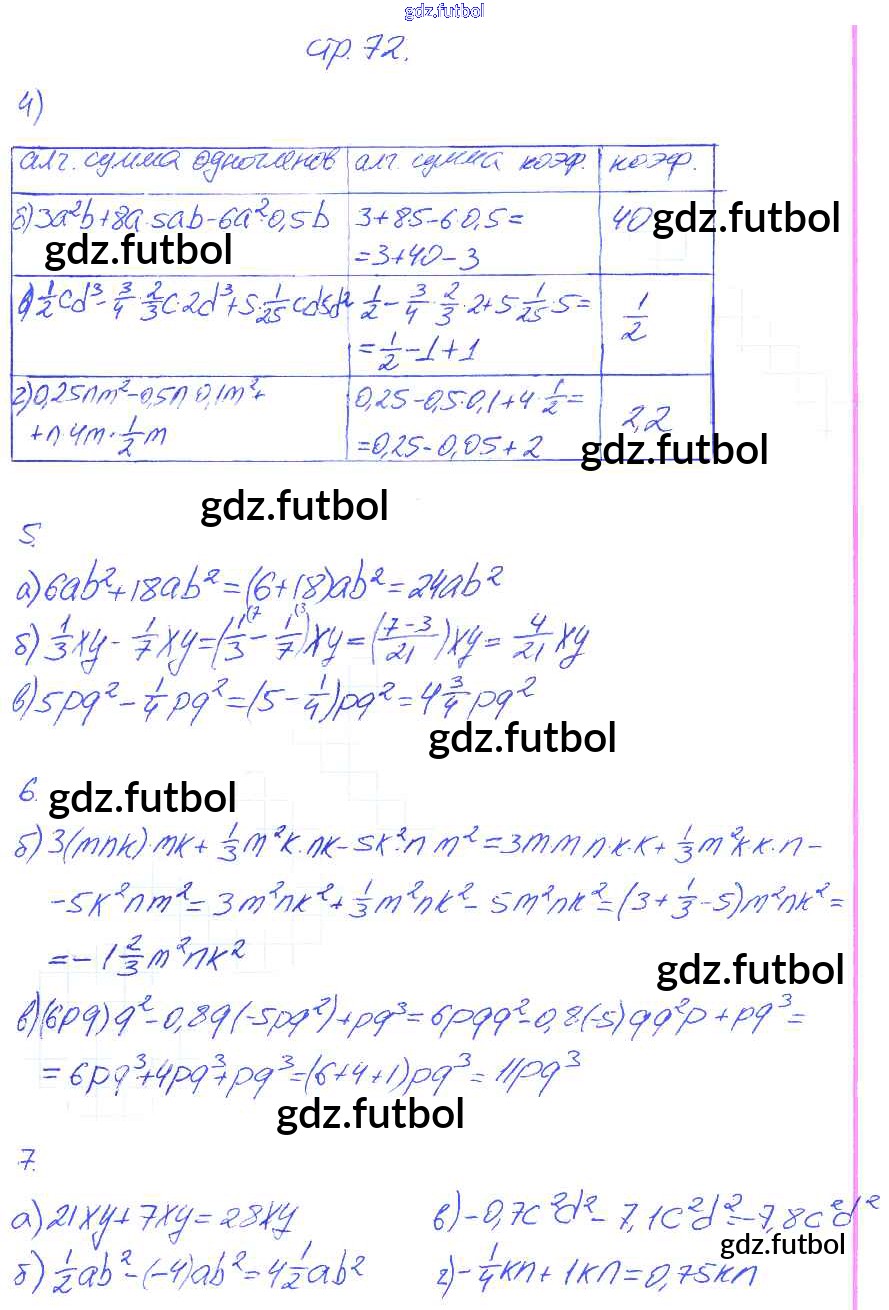 gdz.futbol
стр. 72.
4)
алг. сумма одночленов | алг. сумма коэф. | коэф.
б) 3a²b+8a·5ab-6a²·0,5b | 3+8·5-6·0,5= | 40
gdz.futbol gdz.futbol
=3+40-3
в) 1/2 cd³ - 3/4 · 2/3 c·2d³ + 5·1/25 cd5d² | 1/2 - 3/4 · 2/3 ·2+5·1/25·5= | 1/2
=1/2-1+1
г) 0,25nm²-0,5n 0,1m²+ | 0,25-0,5·0,1+4·1/2= | 2,2
+n·4m·1/2m | =0,25-0,05+2
gdz.futbol
gdz.futbol
5.
а) 6ab²+18ab²=(6+18)ab²=24ab²
б) 1/3xy - 1/7xy=(1/3 (7 - 1/7 (3)xy=((7-3)/21)xy= 4/21xy
в) 5pq² - 1/4pq²=(5-1/4)pq²=4 3/4pq²
gdz.futbol
6. gdz.futbol
б) 3(mnk)·mk+1/3m²k·nk-5k²·n m²=3mm n·k·k+1/3m²kk·n-
-5k²nm²=3m²nk²+1/3m²nk²-5m²nk²=(3+1/3-5)m²nk²=
=-1 2/3m²nk²
gdz.futbol
в) (6pq)q²-0,8q(-5pq²)+pq³=6pqq²-0,8·(-5)qq²p+pq³=
=6pq³+4pq³+pq³=(6+4+1)pq³=11pq³
gdz.futbol
7.
а) 21xy+7xy=28xy
б) 1/2ab²-(-4)ab²=4 1/2ab²
в) -0,7c²d²-7,1c²d²=-7,8c²d²
gdz.futbol
г) -1/4kn+1kn=0,75kn